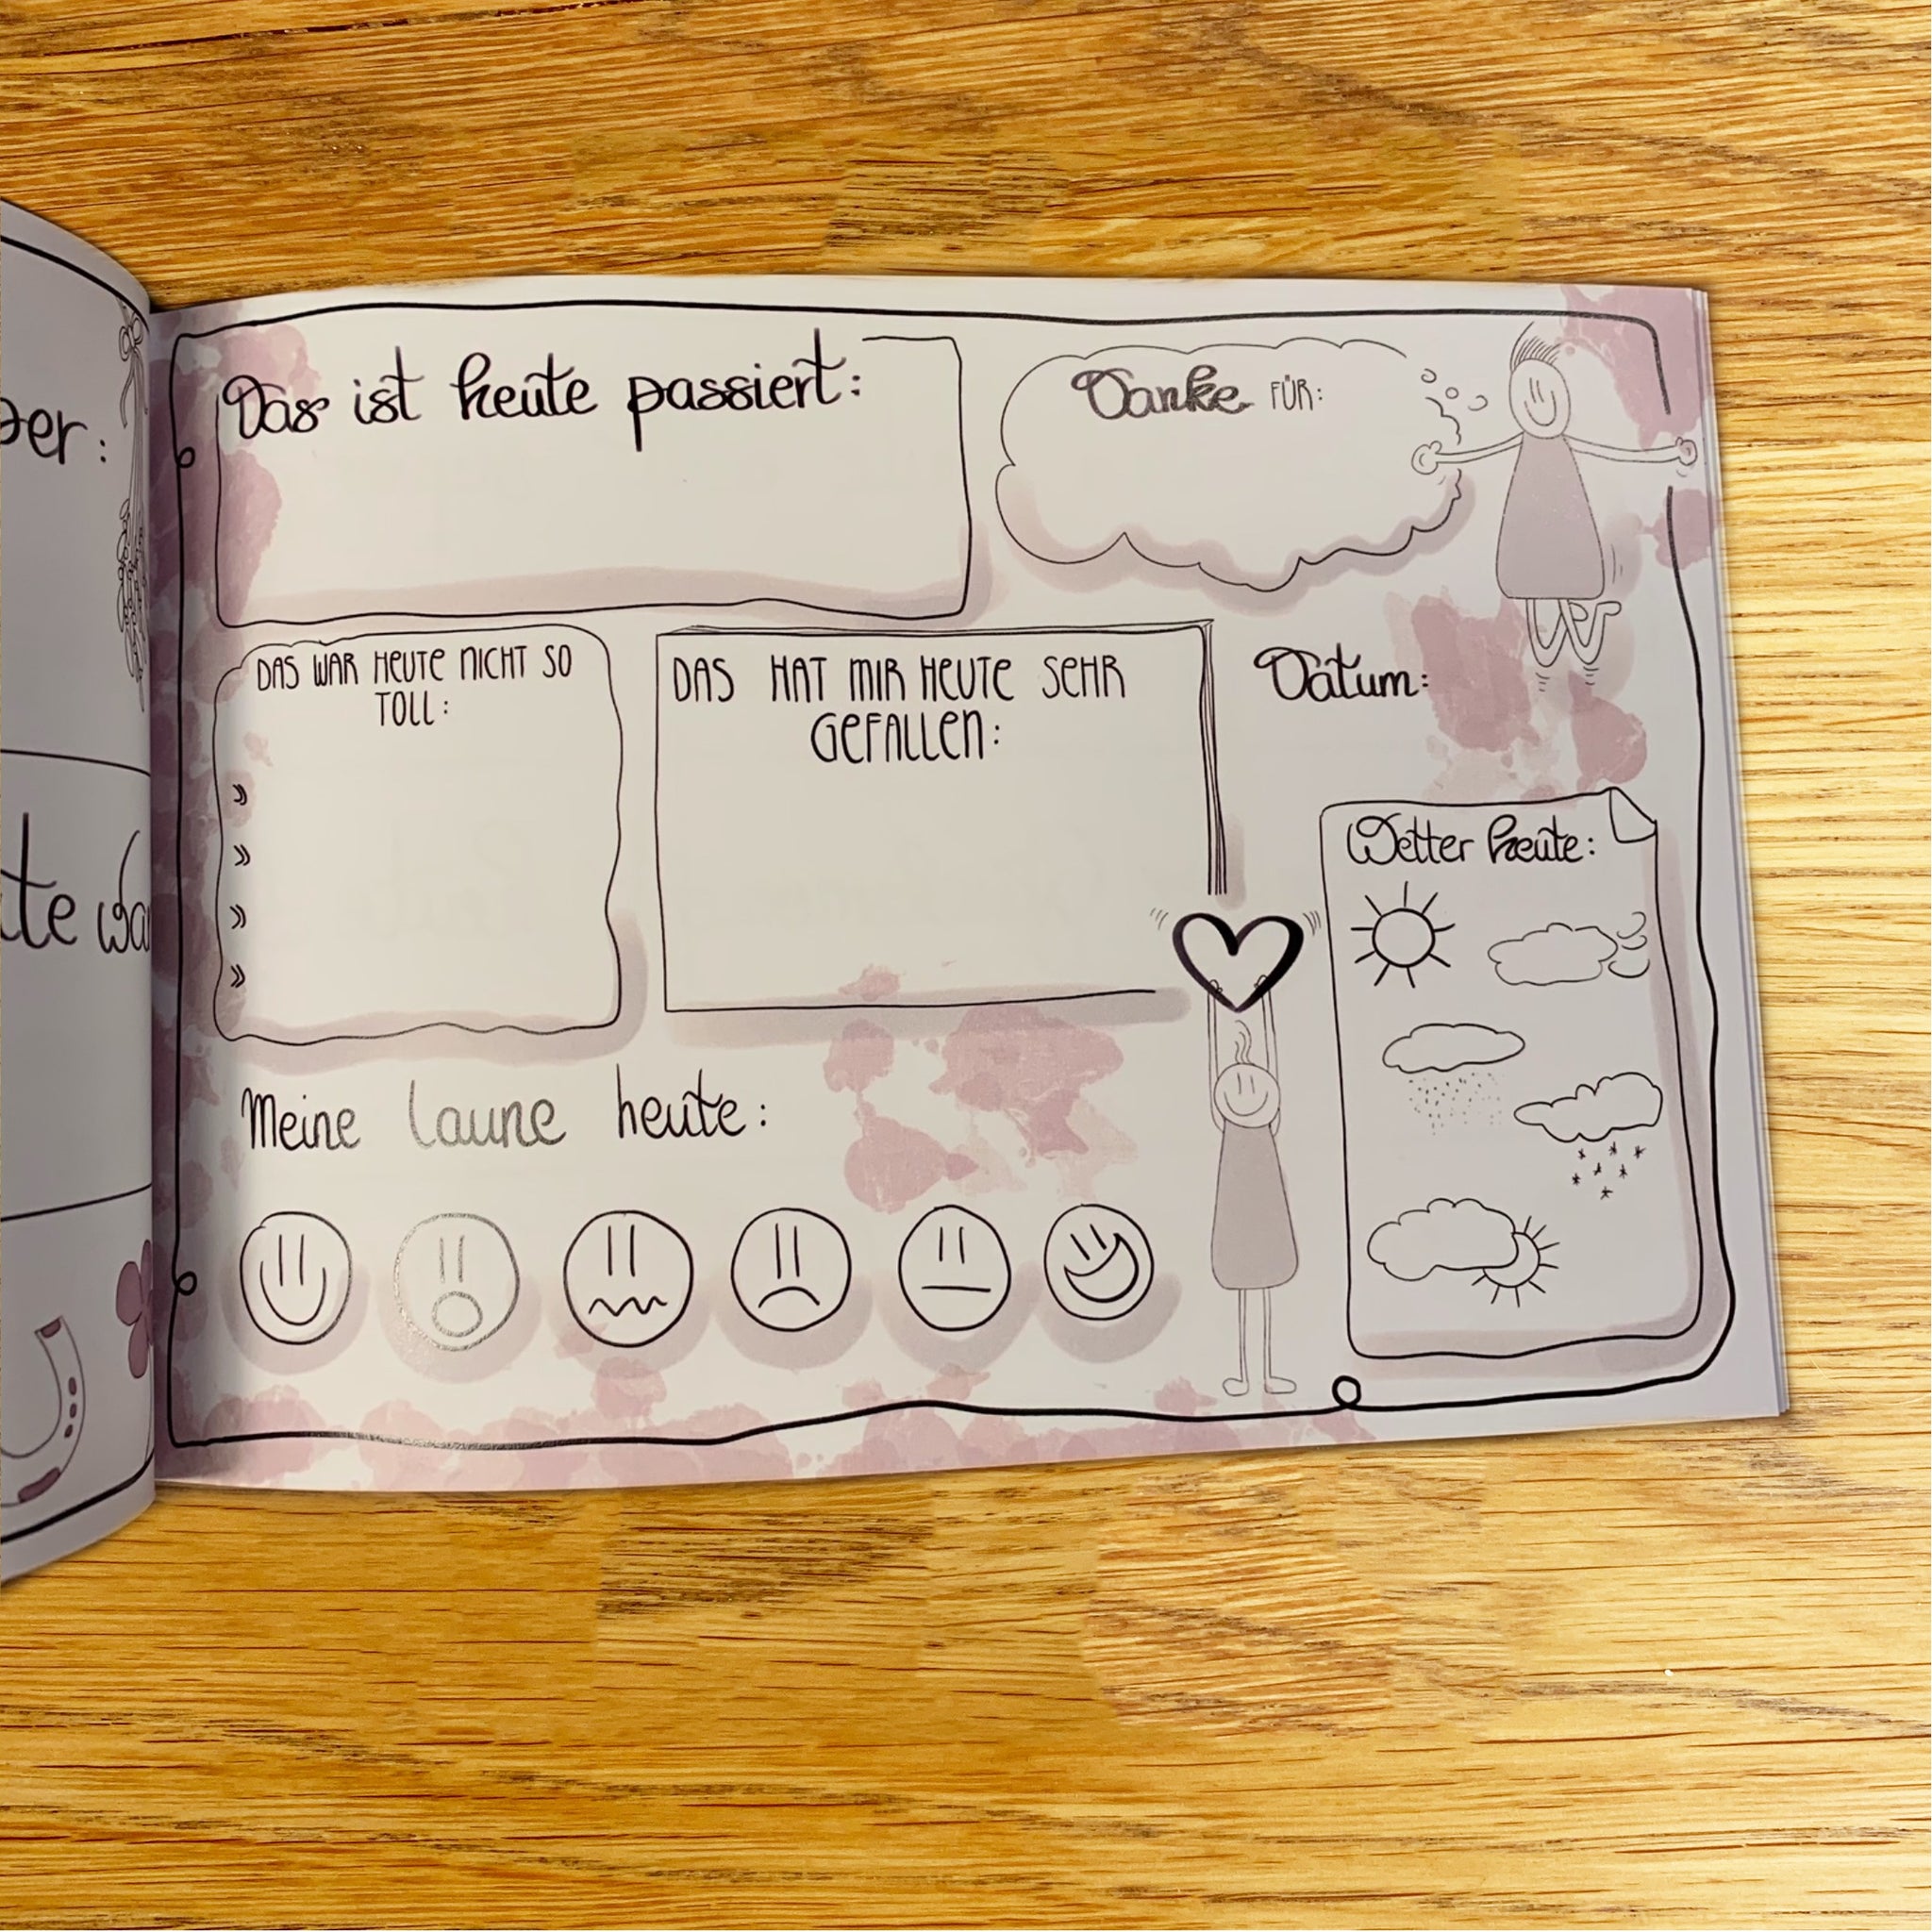 Das ist heute passiert:
Danke FÜR:
DAS WAR HEUTE NICHT SO
TOLL:
DAS HAT MIR HEUTE SEHR
GEFALLEN:
Datum:
Wetter heute:
Meine Laune heute: